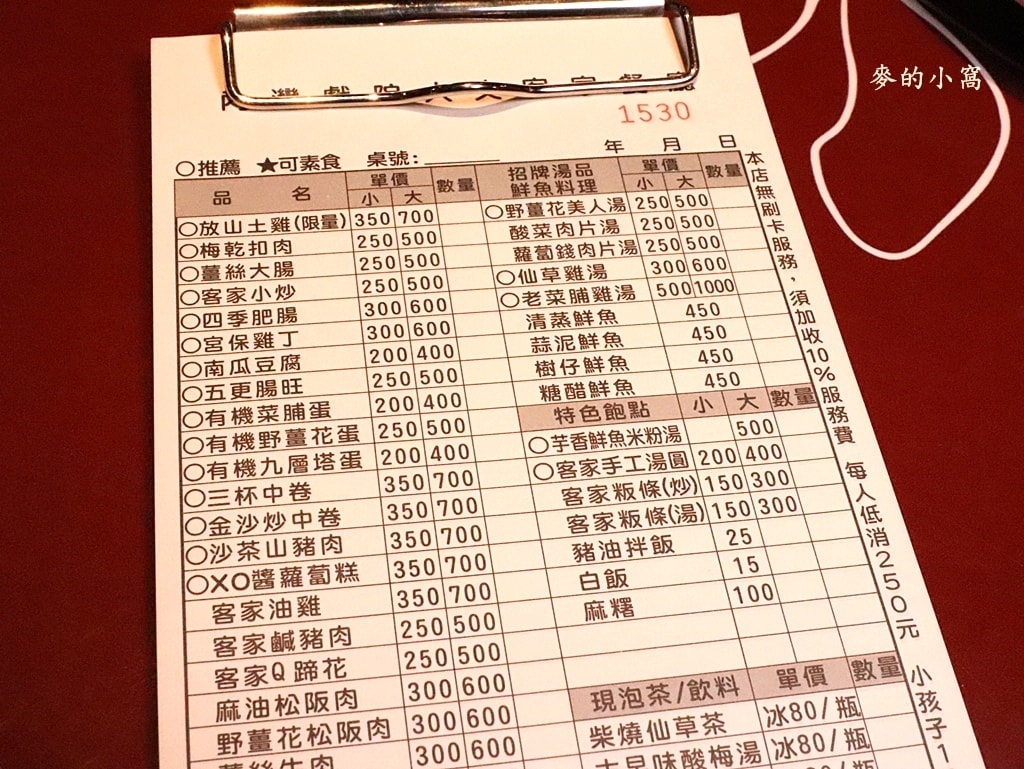 麥的小窩
1530
年 月 日
○推薦 ★可素食 桌號:
品名 單價 小 大 數量
○放山土雞(限量) 350 700
○梅乾扣肉 250 500
○薑絲大腸 250 500
○客家小炒 250 500
○四季肥腸 300 600
○宮保雞丁 300 600
○南瓜豆腐 200 400
○五更腸旺 250 500
○有機菜脯蛋 200 400
○有機野薑花蛋 250 500
○有機九層塔蛋 200 400
○三杯中卷 350 700
○金沙炒中卷 350 700
○沙茶山豬肉 350 700
○XO醬蘿蔔糕 350 700
客家油雞 350 700
客家鹹豬肉 250 500
客家Q蹄花 250 500
麻油松阪肉 300 600
野薑花松阪肉 300 600
薑絲牛肉 300 600
招牌湯品
鮮魚料理 單價 小 大 數量
○野薑花美人湯 250 500
酸菜肉片湯 250 500
蘿蔔錢肉片湯 250 500
○仙草雞湯 300 600
○老菜脯雞湯 500 1000
清蒸鮮魚 450
蒜泥鮮魚 450
樹仔鮮魚 450
糖醋鮮魚 450
特色飽點 小 大 數量
○芋香鮮魚米粉湯 500
○客家手工湯圓 200 400
客家粄條(炒) 150 300
客家粄條(湯) 150 300
豬油拌飯 25
白飯 15
麻糬 100
現泡茶/飲料 單價 數量
柴燒仙草茶 冰80/瓶
古早味酸梅湯 冰80/瓶
本店無刷卡服務,須加收10%服務費 每人低消250元 小孩子1